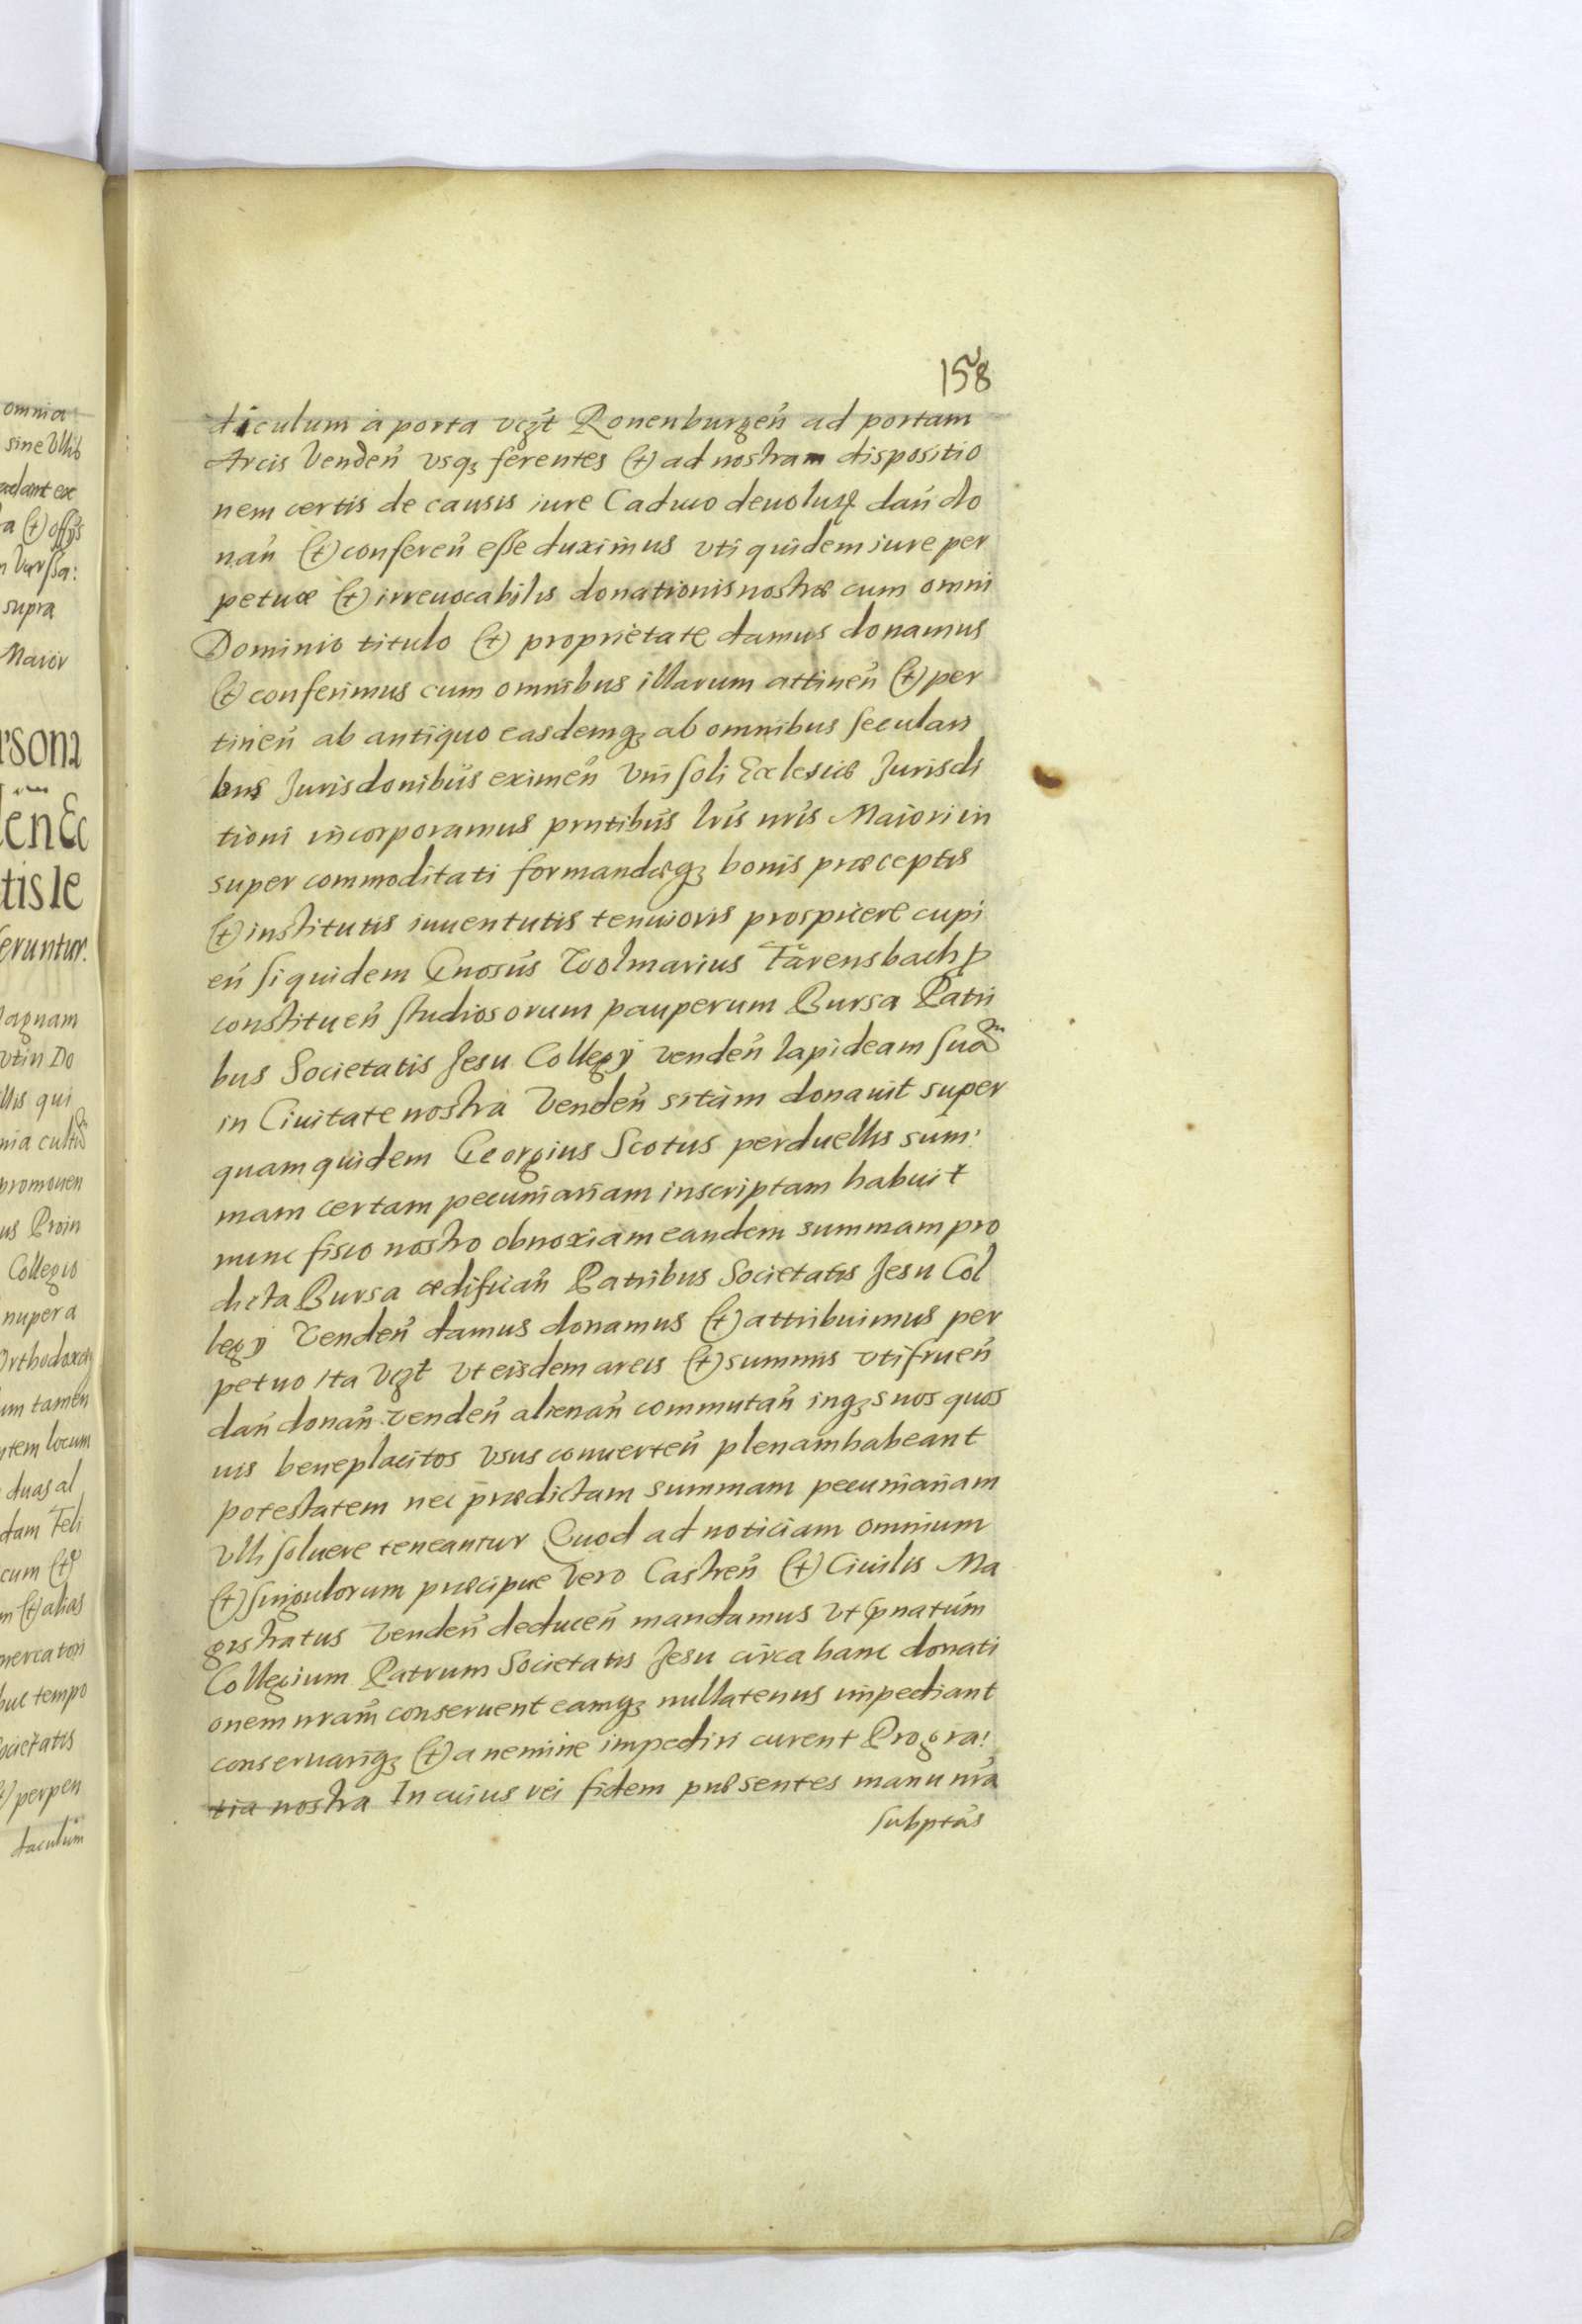 158
diculum a porta vczt Ronenburgen̄ ad portam
Arcis Venden̄ vsqꝫ ferentes (et) ad nostram dispositio
nem certis de causis iure Caduco deuolutꝭ dan̄ do
nan̄ (et) conferen̄ esse duximus vti quidem iure per
petuæ (et) irreuocabilis donationis nostræ cum omni
Dominio titulo (et) proprietate damus donamus
(et) conferimus cum omnibus illarum attinen̄ (et) per
tinen̄ ab antiquo easdemqꝫ ab omnibus seculari
bus Jurisdonibus eximen̄ vni soli Ecclesiæ Jurisdi
tioni incorporamus prntibus lris nris Maiori in
super commoditati formandæqꝫ bonis præceptis
(et) institutis iuuentutis tenuioris prospicere cupi
en̄ siquidem Gnosus Wolmarius Farensbach ꝓ
constituen̄ studiosorum pauperum Bursa Patri
bus Societatis Jesu Collegij Venden̄ lapideam suam
in Ciuitate nostra Venden̄ sitam donauit super
quam quidem Georgius Scotus perduellis sum:
mam certam pecuniariam inscriptam habuit
nunc fisco nostro obnoxiam eandem summam pro
dicta Bursa ædifican̄ Patribus Societatis Jesu Col
legij Venden̄ damus donamus (et) attribuimus per
petuo ita vczt vt eisdem areis (et) summis vtifruen̄
dan̄ donan̄ venden̄ alienan̄ commutan̄ inqꝫ suos quos
uis beneplacitos vsus conuerten̄ plenam habeant
potestatem nec prædictam summam pecuniariam
vlli soluere teneantur Quod ad noticiam omnium
(et) singulorum præcipue vero Castren̄ (et) Ciuilis Ma
gistratus Venden̄ deducen̄ mandamus vt prnatum
Collegium Patrum Societatis Jesu circa hanc donati
onem nram̄ conseruent eamqꝫ nullatenus impediant
conseruariqꝫ (et) a nemine impediri curent Pro gra:
tia nostra In cuius rei fidem præsentes manu nra
subptas
omnia
sine vllis
a (et) offijs
supra
Maior
len̄ Ec
tis le
feruntur.
Magnam
vtin Do
illis qui
promouen
us Proin
Collegio
nuper a
um tamen
duas al
cum (et)
n (et) alias
mercatori
huc tempo
Societatis
) perpen
daculum